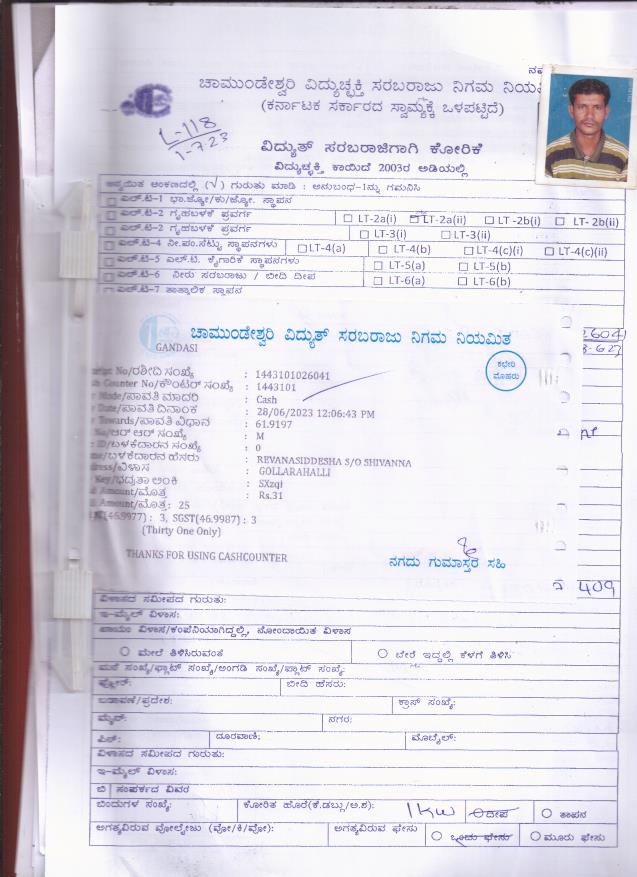 ಚಾಮುಂಡೇಶ್ವರಿ ವಿದ್ಯುಚ್ಛಕ್ತಿ ಸರಬರಾಜು ನಿಗಮ ನಿಯಮಿ
(ಕರ್ನಾಟಕ ಸರ್ಕಾರದ ಸ್ವಾಮ್ಯಕ್ಕೆ ಒಳಪಟ್ಟಿದೆ)
L-118
1-7-23
ವಿದ್ಯುತ್ ಸರಬರಾಜಿಗಾಗಿ ಕೋರಿಕೆ
ವಿದ್ಯುಚ್ಛಕ್ತಿ ಕಾಯಿದೆ 2003ರ ಅಡಿಯಲ್ಲಿ
ಅನ್ವಯಿತ ಅಂಕಣದಲ್ಲಿ (√) ಗುರುತು ಮಾಡಿ : ಅನುಬಂಧ-1ನ್ನು ಗಮನಿಸಿ
ಎಲ್.ಟಿ-1 ಭಾ.ಜ್ಯೋ/ಕು/ಜ್ಯೋ. ಸ್ಥಾಪನ
ಎಲ್.ಟಿ-2 ಗೃಹಬಳಕೆ ಪ್ರವರ್ಗ LT-2a(i) LT-2a(ii) LT -2b(i) LT- 2b(ii)
ಎಲ್.ಟಿ-2 ಗೃಹಬಳಕೆ ಪ್ರವರ್ಗ LT-3(i) LT-3(ii)
ಎಲ್.ಟಿ-4 ನೀ.ಪಂ.ಸೆಟ್ಟು ಸ್ಥಾಪನಗಳು LT-4(a) LT-4(b) LT-4(c)(i) LT-4(c)(ii)
ಎಲ್.ಟಿ-5 ಎಲ್.ಟಿ. ಕೈಗಾರಿಕೆ ಸ್ಥಾಪನಗಳು LT-5(a) LT-5(b)
ಎಲ್.ಟಿ-6 ನೀರು ಸರಬರಾಜು / ಬೀದಿ ದೀಪ LT-6(a) LT-6(b)
ಎಲ್.ಟಿ-7 ತಾತ್ಕಾಲಿಕ ಸ್ಥಾಪನ
ಚಾಮುಂಡೇಶ್ವರಿ ವಿದ್ಯುತ್ ಸರಬರಾಜು ನಿಗಮ ನಿಯಮಿತ
GANDASI
ಕಛೇರಿ ಮೊಹರು
No/ರಶೀದಿ ಸಂಖ್ಯೆ : 1443101026041
Counter No/ಕೌಂಟರ್ ಸಂಖ್ಯೆ : 1443101
Mode/ಪಾವತಿ ಮಾದರಿ : Cash
Date/ಪಾವತಿ ದಿನಾಂಕ : 28/06/2023 12:06:43 PM
Towards/ಪಾವತಿ ವಿಧಾನ : 61.9197
No/ಆರ್ ಆರ್ ಸಂಖ್ಯೆ : M
ID/ಬಳಕೆದಾರನ ಸಂಖ್ಯೆ : 0
/ಬಳಕೆದಾರನ ಹೆಸರು : REVANASIDDESHA S/O SHIVANNA
/ವಿಳಾಸ : GOLLARAHALLI
Key/ಭದ್ರತಾ ಅಂಕಿ : SXzqi
Amount/ಮೊತ್ತ : Rs.31
Amount/ಮೊತ್ತ: 25
(46.9977) : 3, SGST(46.9987) : 3
(Thirty One Only)
THANKS FOR USING CASHCOUNTER
ನಗದು ಗುಮಾಸ್ತರ ಸಹಿ
409
ವಿಳಾಸದ ಸಮೀಪದ ಗುರುತು:
ಇ-ಮೈಲ್ ವಿಳಾಸ:
ಖಾಯಂ ವಿಳಾಸ/ಕಂಪೆನಿಯಾಗಿದ್ದಲ್ಲಿ, ನೋಂದಾಯಿತ ವಿಳಾಸ
ಮೇಲೆ ತಿಳಿಸಿರುವಂತೆ ಬೇರೆ ಇದ್ದಲ್ಲಿ ಕೆಳಗೆ ತಿಳಿಸಿ
ಮನೆ ಸಂಖ್ಯೆ/ಫ್ಲಾಟ್ ಸಂಖ್ಯೆ/ಅಂಗಡಿ ಸಂಖ್ಯೆ/ಪ್ಲಾಟ್ ಸಂಖ್ಯೆ:
ಫ್ಲೋರ್: ಬೀದಿ ಹೆಸರು:
ಬಡಾವಣೆ/ಪ್ರದೇಶ: ಕ್ರಾಸ್ ಸಂಖ್ಯೆ:
ಮೈನ್: ನಗರ:
ಪಿನ್: ದೂರವಾಣಿ: ಮೊಬೈಲ್:
ವಿಳಾಸದ ಸಮೀಪದ ಗುರುತು:
ಇ-ಮೈಲ್ ವಿಳಾಸ:
ಬಿ) ಸಂಪರ್ಕದ ವಿವರ
ಬಿಂದುಗಳ ಸಂಖ್ಯೆ: ಕೋರಿತ ಹೊರೆ(ಕೆ.ಡಬ್ಲು/ಅ.ಶ): 1KW ದೀಪ ತಾಪನ
ಅಗತ್ಯವಿರುವ ವೋಲ್ಟೇಜು (ವೋ/ಕಿ/ವೋ): ಅಗತ್ಯವಿರುವ ಫೇಸು ಒಂದು ಫೇಸು ಮೂರು ಫೇಸು